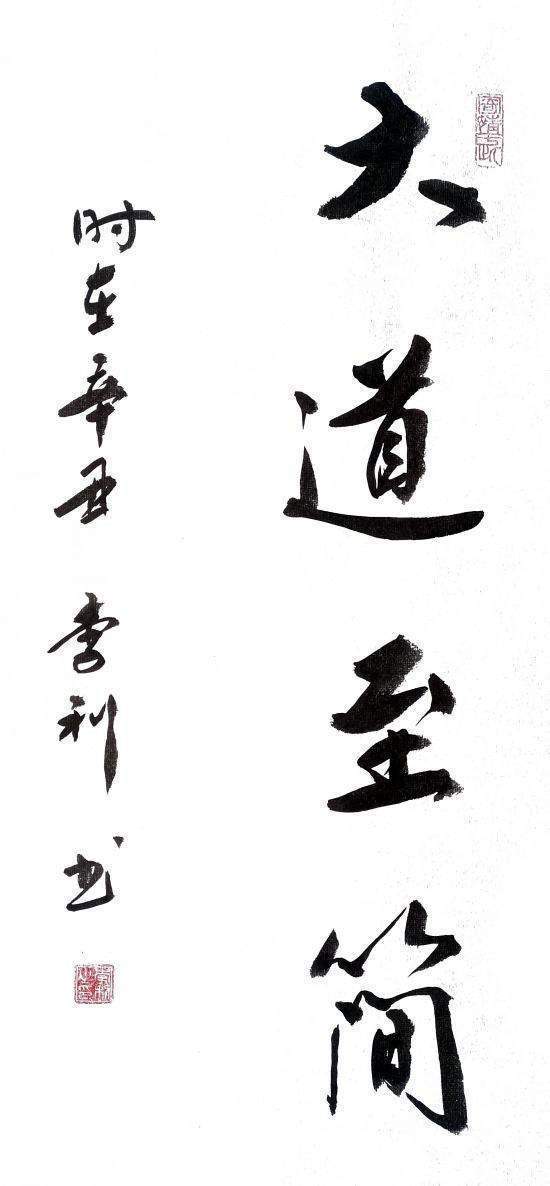 大道至简
时在辛丑 李利书